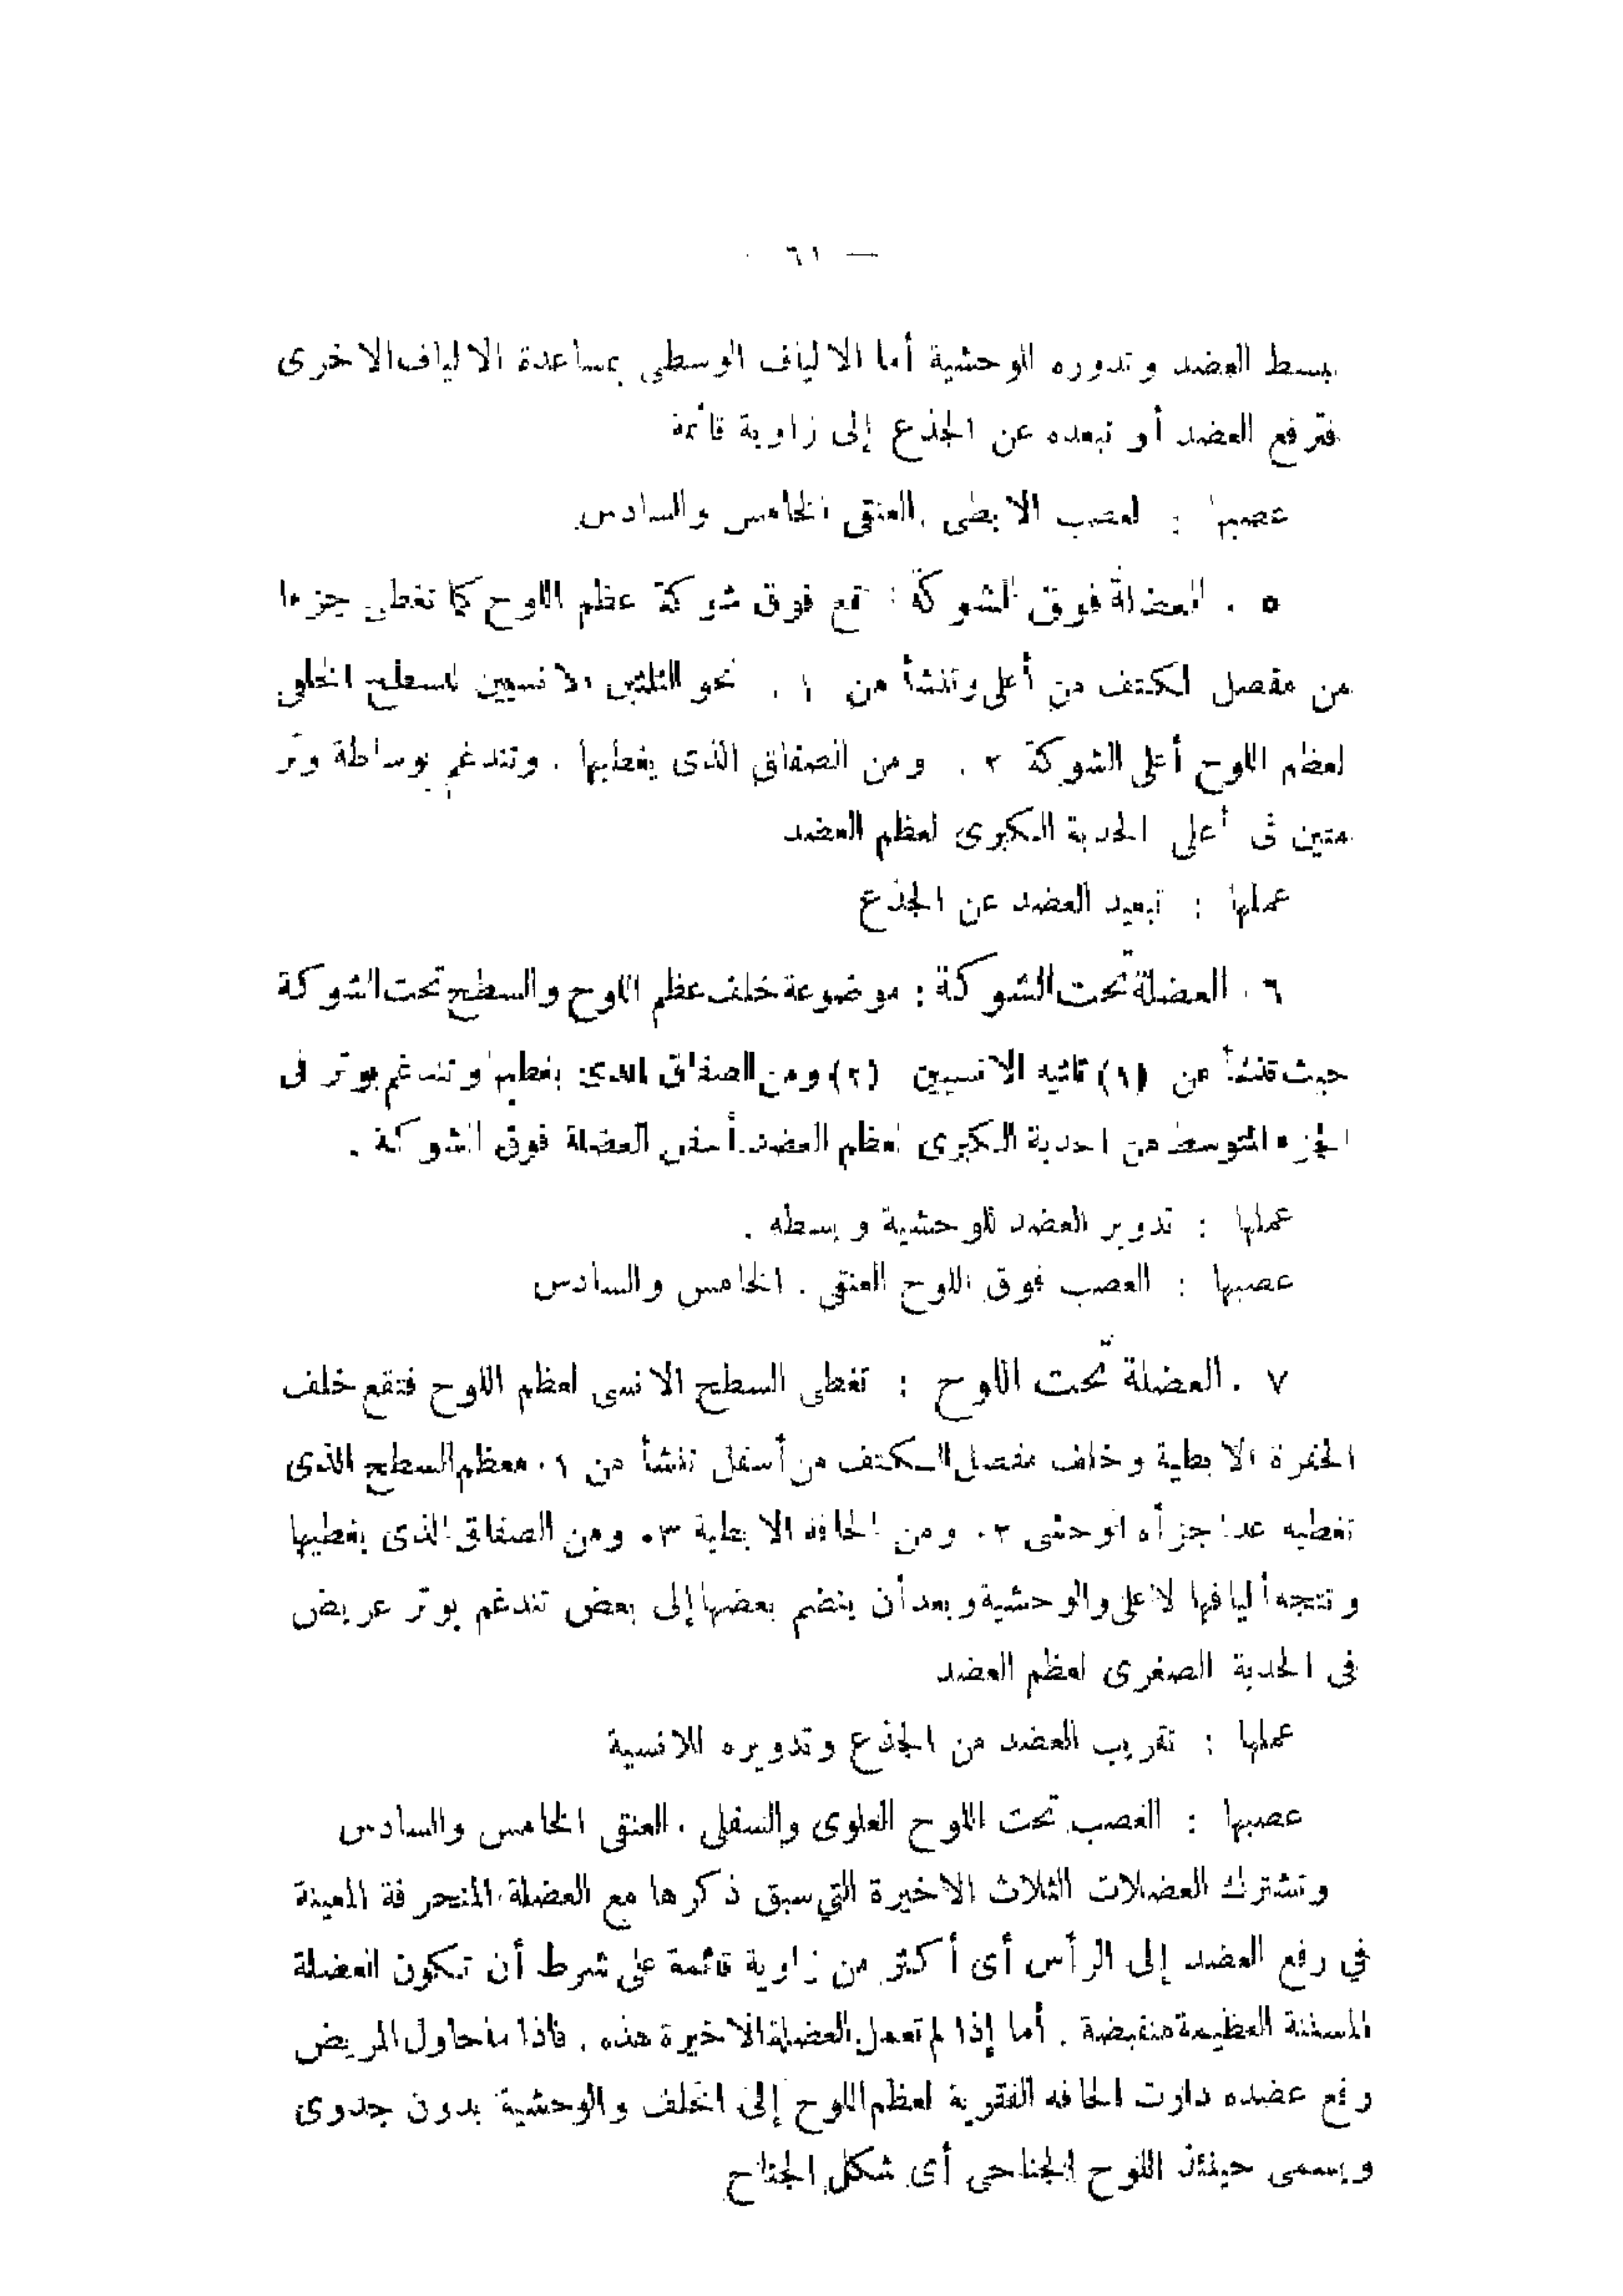 — ٦١
بسط العضد وتدوره للوحشية أما الالياف الوسطى بمساعدة الالياف الاخرى
فترفع العضد أو تبعده عن الجذع إلى زاوية قائمة
عصبها : لعصب الابطى . العنقى الخامس والسادس
٥ . العضلة فوق الشوكة : تقع فوق شوكة عظم اللوح كما تغطى جزءا
من مفصل الكتف من أعلى وتنشأ من ١ . نحو الثلثين الانسيين للسطح الخلفى
لعظم اللوح أعلى الشوكة ٢ . ومن الصفاق الذى يغطيها . وتندغم بوساطة وتر
متين فى أعلى الحدبة الكبرى لعظم العضد
عملها : تبعيد العضد عن الجذع
٦ . العضلة تحت الشوكة : موضوعة خلف عظم اللوح والسطح تحت الشوكة
حيث تنشأ من (١) ثلثيه الانسيين (٢) ومن الصفاق الذى يغطيها وتندغم بوتر فى
الجزء المتوسط من الحدبة الكبرى لعظم العضد أسفل العضلة فوق الشوكة .
عملها : تدوير العضد للوحشية وبسطه .
عصبها : العصب فوق اللوح العنقى . الخامس والسادس
٧ . العضلة تحت اللوح : تغطى السطح الانسى لعظم اللوح فتقع خلف
الحفرة الابطية وخلف مفصل الكتف من أسفل تنشأ من ١ . معظم السطح الذى
تغطيه عدا جزأه الوحشى ٢ . ومن الحافة الابطية ٣ . ومن الصفاق الذى يغطيها
وتتجه أليافها لاعلى والوحشية وبعد أن ينضم بعضها إلى بعض تندغم بوتر عريض
فى الحدبة الصغرى لعظم العضد
عملها : تقريب العضد من الجذع وتدويره للانسية
عصبها : العصب تحت اللوح العلوى والسفلى . العنقى الخامس والسادس
وتشترك العضلات الثلاث الاخيرة التي سبق ذكرها مع العضلة المنحرفة المعينة
في رفع العضد إلى الرأس أى أكثر من زاوية قائمة على شرط أن تكون العضلة
المسننة العظيمة منقبضة . أما إذا لم تعمل العضلة الاخيرة هذه . فاذا ما حاول المريض
رفع عضده دارت الحافه الفقرية لعظم اللوح إلى الخلف والوحشية بدون جدوى
ويسمى حينئذ اللوح الجناحى أى شكل الجناح